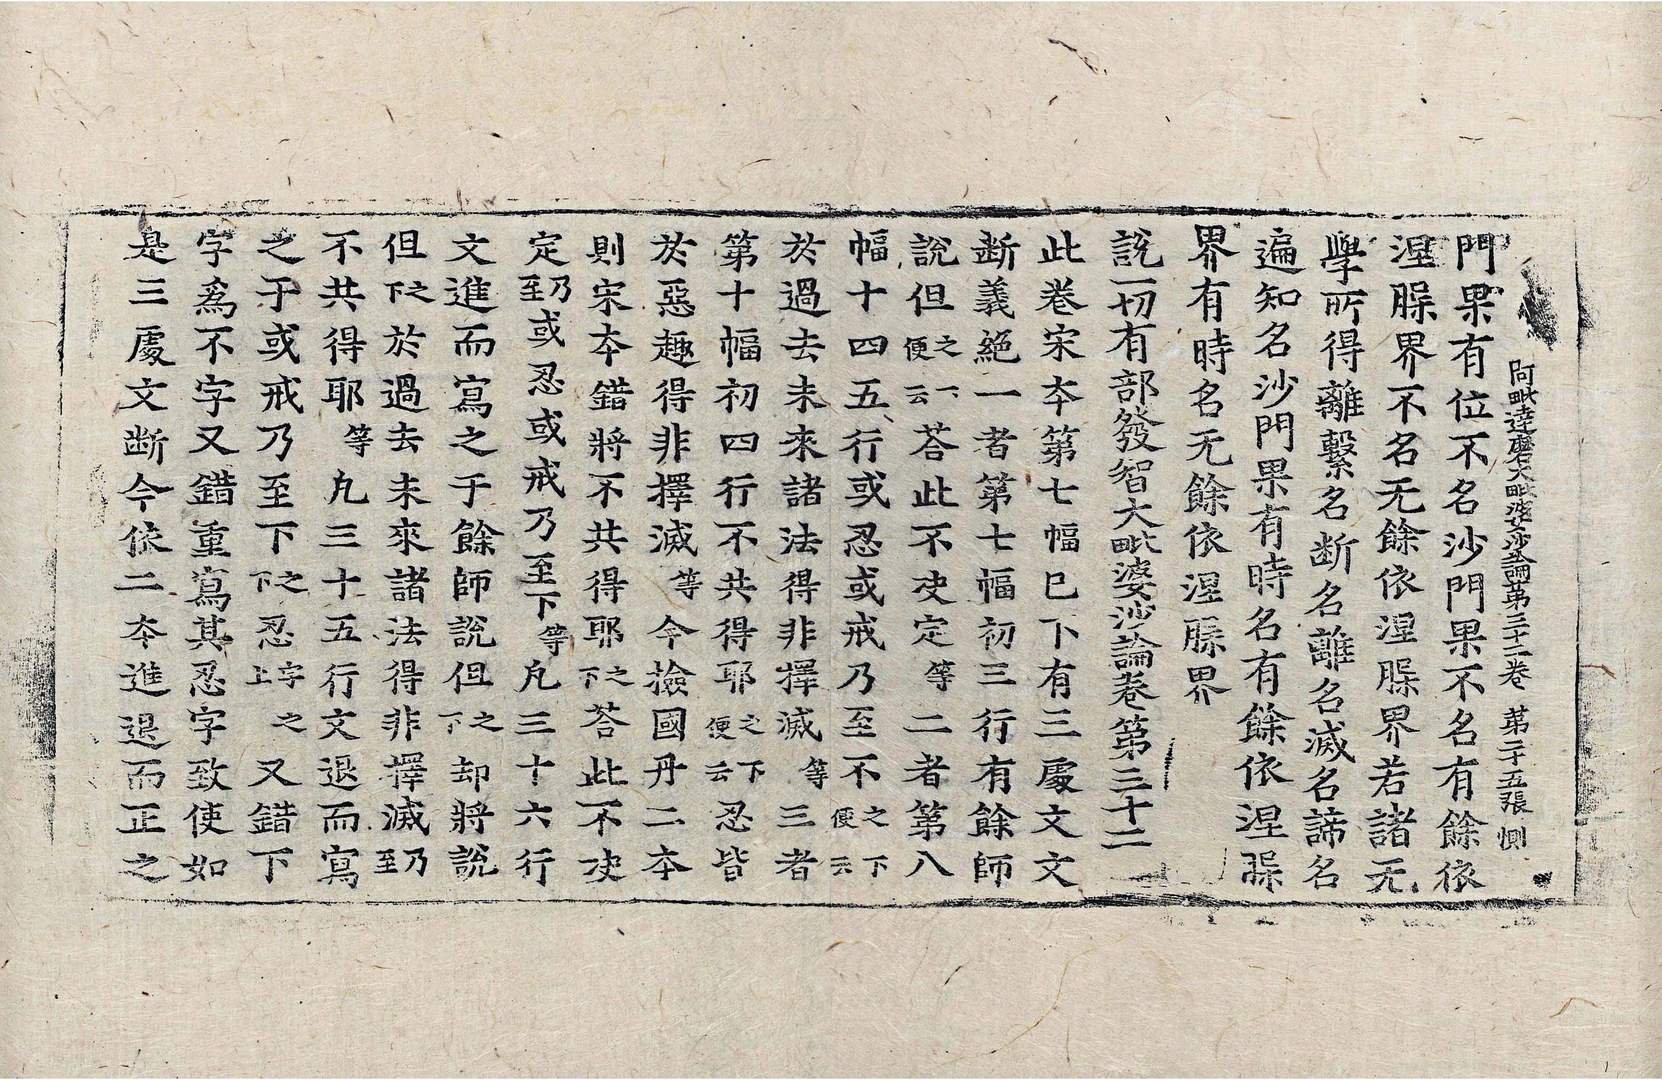 阿毗達磨大毗婆沙論第三十二卷 第二十五張 惻
門果有位不名沙門果不名有餘依
涅槃界不名无餘依涅槃界若諸无
學所得離繫名断名離名滅名諦名
遍知名沙門果有時名有餘依涅槃
界有時名无餘依涅槃界
說一切有部發智大毗婆沙論卷第三十二
此卷宋本第七幅已下有三處文文
断義絕一者第七幅初三行有餘師
說但之下便云荅此不决定等二者第八
幅十四五行或忍或戒乃至不之下便云
於過去未來諸法得非擇滅等三者
第十幅初四行不共得耶之下便云忍皆
於惡趣得非擇滅等今撿國丹二本
則宋本錯將不共得耶之下荅此不决
定乃至或忍或戒乃至下等凡三十六行
文進而寫之于餘師說但之下却將說
但之下於過去未來諸法得非擇滅乃至
不共得耶等凡三十五行文退而寫
之于或戒乃至下之下忍字之上又錯下
字爲不字又錯重寫其忍字致使如
是三處文断今依二本進退而正之